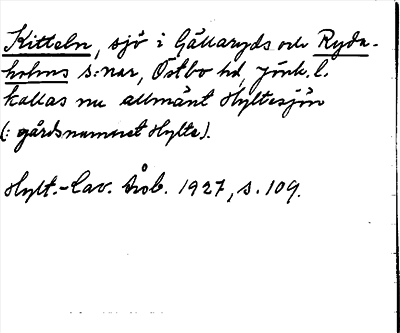 Kitteln, sjö i Gällaryds och Ryda-
holms s:nar, Östbo hd, Jönk. l.
kallas nu allmänt Hyltesjön
(: gårdsnamnet Hylte).
Hylt.-Cav. Tröb. 1927, s. 109.